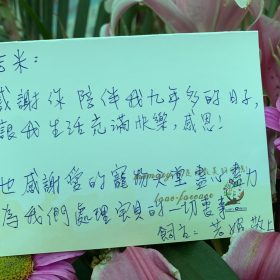 吉米：
感謝你陪伴我九年多的日子，
讓我生活充滿快樂，感恩！
也感謝愛的寵物天堂盡心盡力
為我們處理寶貝的一切喪事
飼主：若娟 敬上